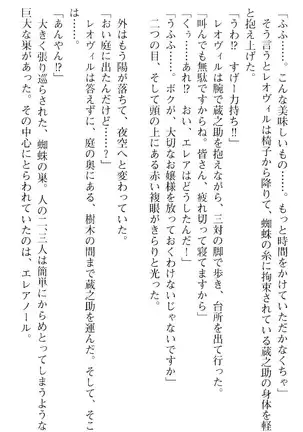 「ふふ……。こんな美味しいもの……。もっと時間をかけていただかなくちゃ」
　そう言うとレオヴィルは椅子から降りて、蜘蛛の糸に拘束されている蔵之助の身体を軽
と抱え上げた。
「うわ⁉　すげー力持ち‼」
「叫んでも無駄ですからね。皆さん、疲れ切って寝てますから」
　レオヴィルは腕で蔵之助を抱えながら、三対の脚で歩き、台所を出て行った。
「くぅ……あれ⁉　おい、エレアはどうしたんだ！」
「うふふ……。ボクが、大切なお嬢様を放っておくわけないじゃないですか」
　二つの目、そして頭の上にある赤い複眼がきらりと光った。
「お、おい庭に出たんだけど……？」
　外はもう陽が落ちて、夜空へと変わっていた。
　レオヴィルは答えずに、庭の奥にある、樹木の間まで蔵之助を運んだ。そして、そこ
は――。
「あんやん⁉」
　大きく張り巡らされた、蜘蛛の巣。人の一、二人は簡単にからめとってしまうような
巨大な巣があった。その中心にとらわれていたのは、エレアノール。